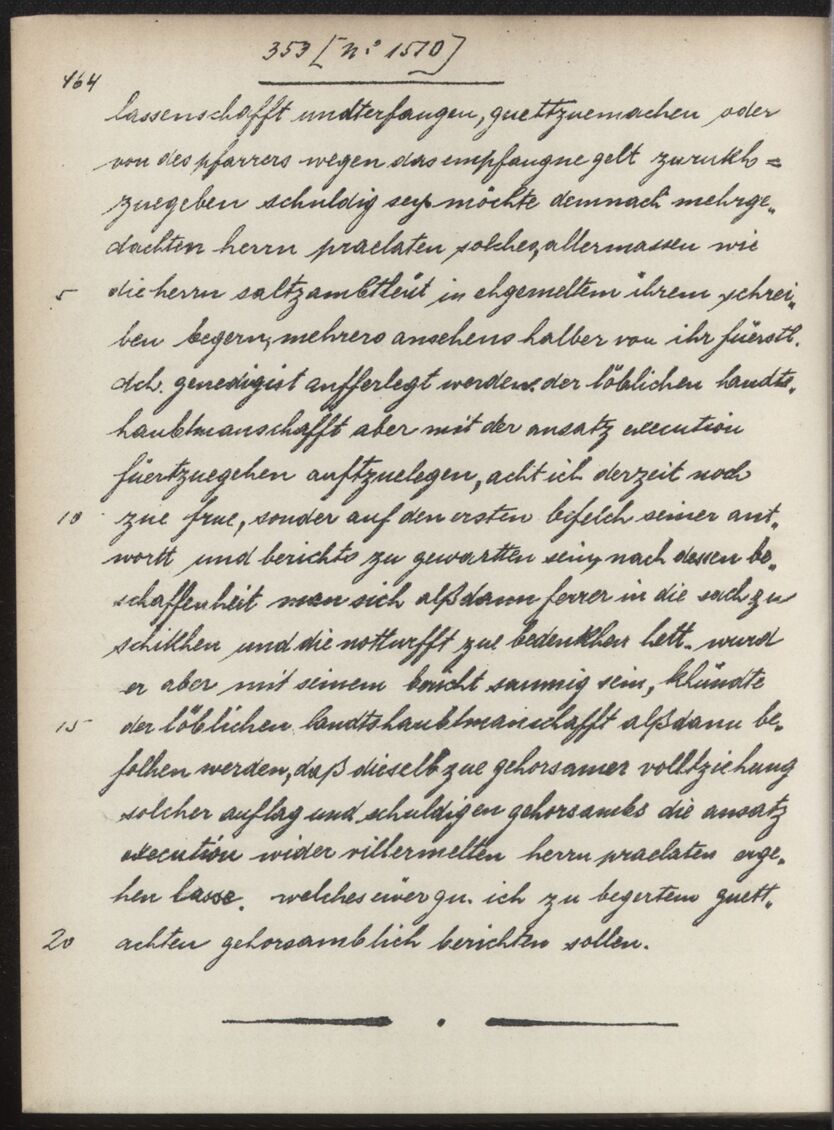 353 [n.° 1510]
164
lassenschafft undterfangen, guettzuemachen oder
von des pfarrers wegen das empfangne gelt zurukh=
zuegeben schuldig sey. möchte demnach mehrge„
dachten herrn praelaten solches, allermassen wie
5 die herrn saltzambtleüt in ehgemeltem ihrem schrei„
ben begern, mehrers ansehens halber von ihr fürstl.
dch. genedigist aufferlegt werden. der löblichen landts„
haubtmanschafft aber mit der ansatz execution
füertzuegehen auftzuelegen, acht ich derzeit noch
10 zue frue, sonder auf den ersten befelch seiner ant„
wortt und berichts zu gewartten sein, nach dessen be„
schaffenheit man sich alßdann ferrer in die sach zu
schikhen und die notturfft zue bedenkhen hett. wurd
er aber mit seinem bericht saumig sein, khündte
15 der löblichen landtshaubtmanschafft alßdann be„
folhen werden, daß dieselb zue gehorsamer volltziehung
solcher auflag und schuldigen gehorsambs die ansatz
execution wider villermelten herrn praelaten erge„
hen lasse. welches eüer gn. ich zu begertem guett„
20 achten gehorsamblich berichten sollen.